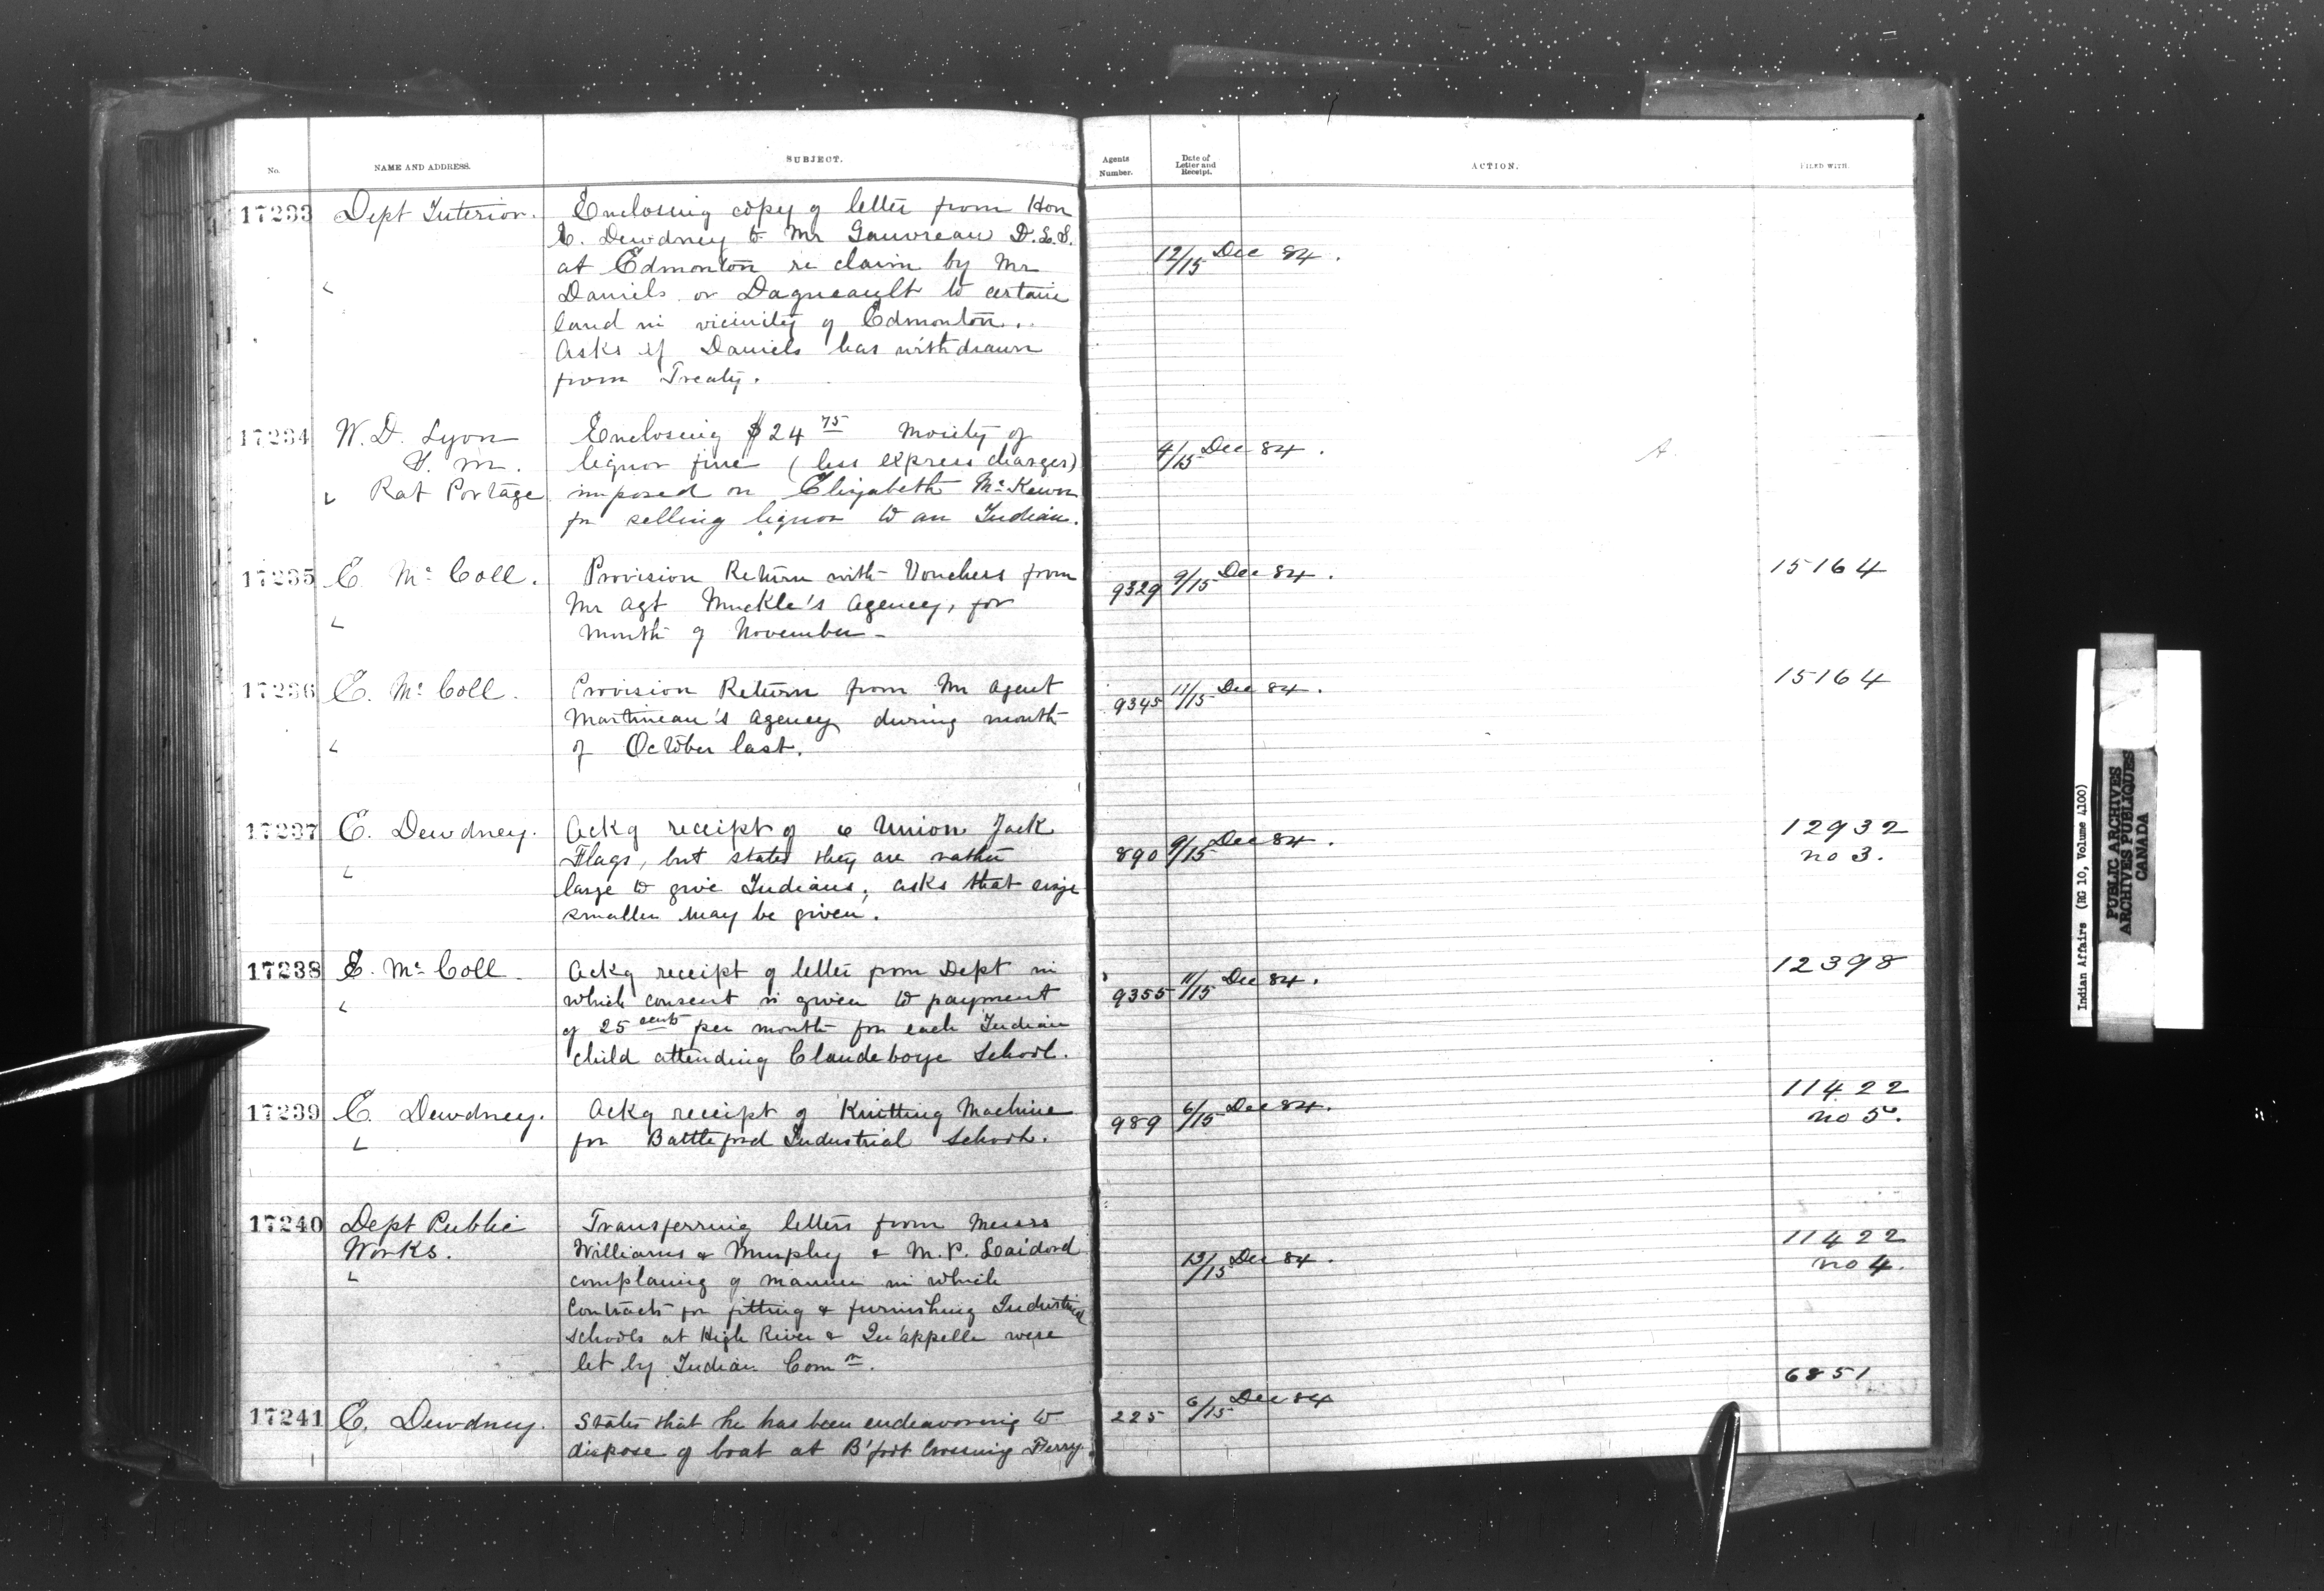 No.
NAME AND ADDRESS.
SUBJECT.
Agents Number.
Date of Letter and Receipt.
ACTION.
FILED WITH.
17233 Dept Interior. Enclosing copy of letter from Hon
E. Dewdney to Mr Gauvreau D.L.S.
at Edmonton re claim by Mr 12/15 Dec 84.
Daniels or Dagneault to certain
land in vicinity of Edmonton..
Asks if Daniels has withdrawn
from Treaty.
17234 W. D. Lyon Enclosing $24 75 Moiety of
S. M. liquor fine (less express charges) 4/15 Dec 84. A.
Rat Portage imposed on Elizabeth McKewn
for selling liquor to an Indian.
17235 E. McColl. Provision Return with Vouchers from 9329 9/15 Dec 84. 15164
Mr Agt Muckle's Agency, for
month of November -
17236 E. McColl. Provision Return from Mr Agent 9345 11/15 Dec 84. 15164
Martineau's Agency during month
of October last.
17237 E. Dewdney. Ackg receipt of 6 Union Jack 12932
Flags, but states they are rather 890 9/15 Dec 84. no 3.
large to give Indians, asks that
smaller may be given.
17238 E. McColl. Ackg receipt of letter from Dept in 12398
which consent is given to payment 9355 11/15 Dec 84.
of 25 cents per month for each Indian
child attending Clandeboye School.
17239 E. Dewdney. Ackg receipt of Knitting Machine 989 6/15 Dec 84. 11422
for Battleford Industrial School. no 5.
17240 Dept Public Transferring letters from Messrs
Works. Williams & Murphy & M. P. 13/15 Dec 84. 11422
complaing of manner in which no 4.
Contracts for fitting & furnishing Industrial
Schools at High River & Qu'appelle were
let by Indian Comn.
6851
17241 E. Dewdney. States that he has been endeavoring to 225 6/15 Dec 84
dispose of boat at B'foot Crossing Ferry.
Indian Affairs (RG 10, Volume 4100)
PUBLIC ARCHIVES
ARCHIVES PUBLIQUES
CANADA